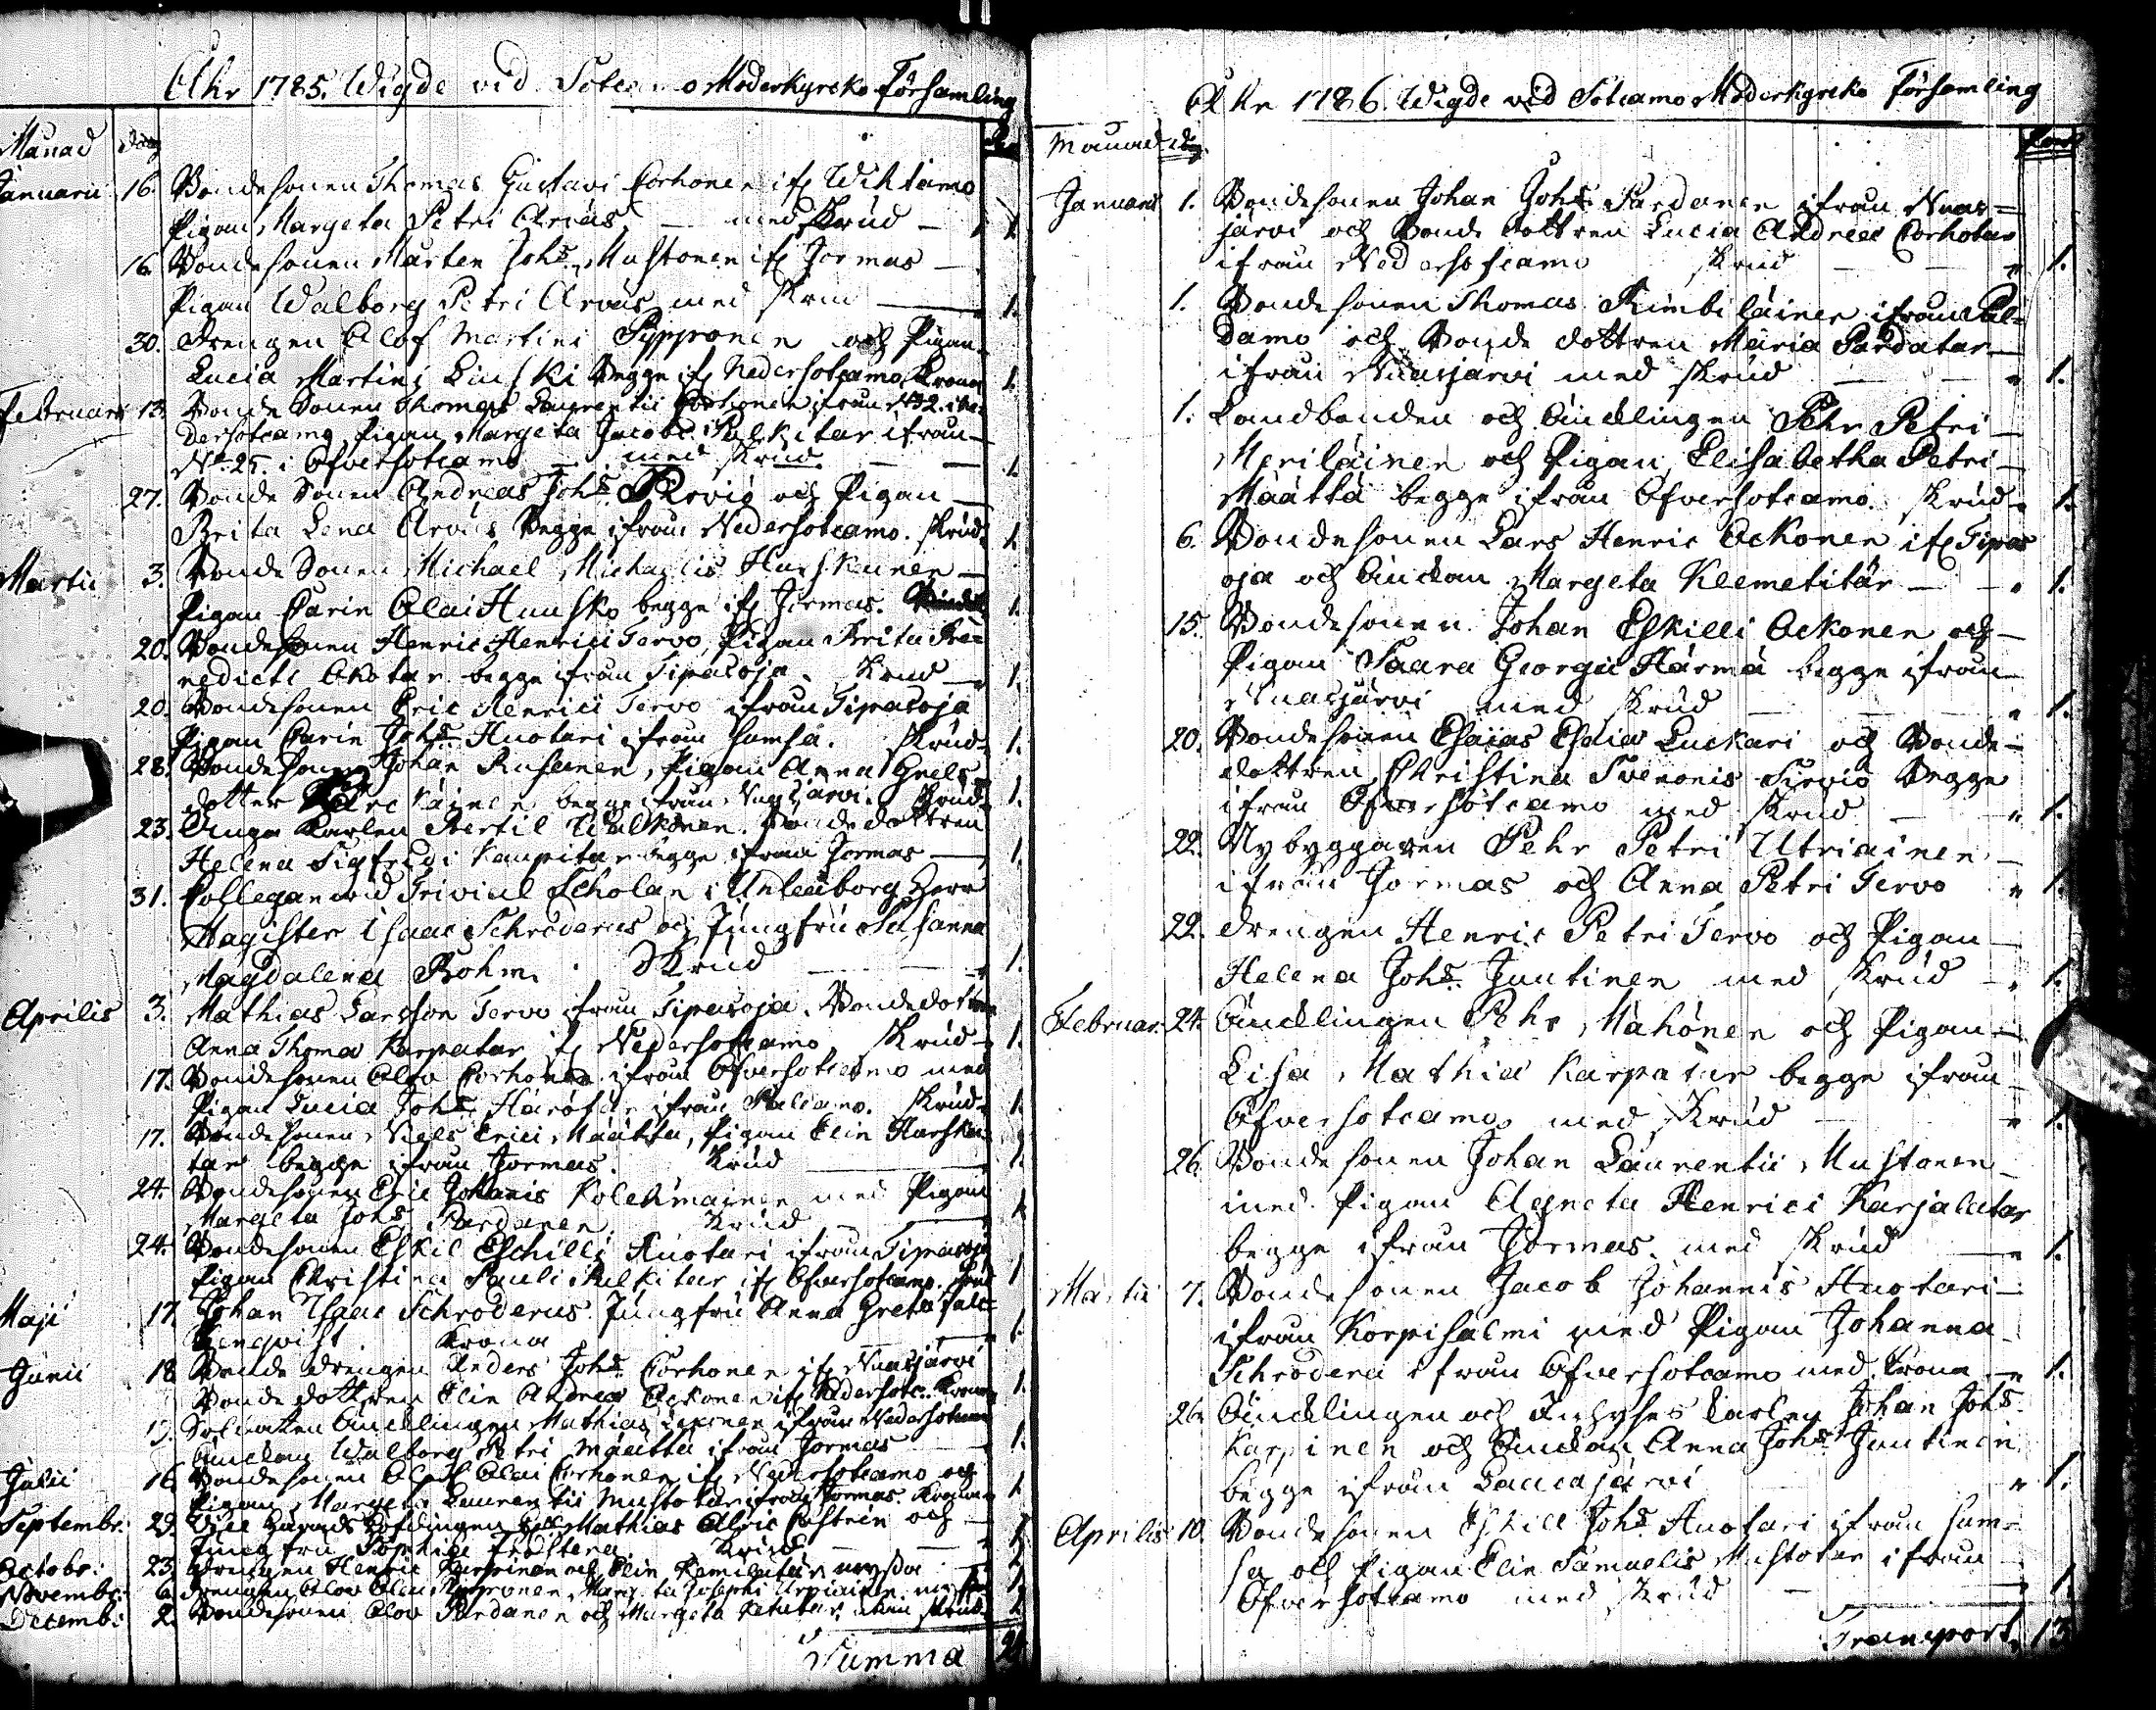 Åhr 1785. Wigde vid Sotcamo Moderkyrcko Församling
Månad dag
Januarii 16. Bondesonen Thomas Gustavi Corhonen if: Wihtamo
Pigan Margeta Petri Arvas — med skrud — 1.
16. Bondesonen Mårten Johs: Mustonen if: Jormas —
Pigan Walborg Petri Arvas med skrud — 1.
30. Drengen Olof Martini Pypponen och Pigan
Lucia Martini Liuski begge if: Nedersotcamo, Krona 1.
Februarii 13. Bonde Sonen Thomas Laurentii Corhonen ifrån N 32. i Ne=
dersotcamo, Pigan Margeta Jacobi Pulkitar ifrån —
No 25. i Öfversotcamo — med skrud — — 1.
27. Bonde Sonen Andreas Johs: och Pigan —
Brita Lena Arvas begge ifrån Nedersotcamo. skrud 1.
Martii 3. Bonde Sonen Michael Michaelis Hurskainen —
Pigan Carin Olai Huusko begge if: Jormas. 1.
20. Bondesonen Henric Henrici Tervo, Pigan Brita Be=
nedicti Okotar begge ifrån Tipasoja. skrud — 1.
20. Bondesonen Eric Henrici Tervo ifrån Tipasoja
Pigan Carin Johs: Huotari ifrån Sumsa. skrud 1.
28. Bondesonen Johan Rusanen, Pigan Anna Gnels
dotter begge ifrån Nuasjärvi. skrud 1.
23. Unga Karlen Bertil Walkonen. Bondedottren
Helena Sigfridi Kaupitar begge ifrån Jormas — 1.
31. Collegan vid Trivial Scholan i Uhleåborg Herr
Magister Isaac Schroderus och Jungfru Susanna
Magdalena Bohm. Skrud — 1.
Aprilis 3. Mathias Larsson Tervo ifrån Tipasoja. Bondedottren
Anna Thoma Karpatar if: Nedersotcamo. Skrud 1.
17. Bondesonen Olov Corhonen ifrån Öfversotcamo med
Pigan Lucia Johs: ifrån Paldamo. skrud 1.
17. Bondesonen Niels Erici Määttä, Pigan Elin Hurskai=
tar begge ifrån Jormas. skrud — 1.
24. Bondesonen Eric Johannis Kolehmainen med Pigan
Margeta Johs: Pardanen. skrud — 1.
24. Bondesonen Eskil Eschilli Huotari ifrån Tipasoja
Pigan Christina Pauli Pulkitar if: Öfversotcamo. skrud 1
Maji 17. Johan Isaac Schroderus Jungfru Anna Greta
Krona — 1.
Junii 18. Bonde drengen Anders Johs: Corhonen if: Nuasjärvi
Bonde dottren Elin Andrea Ockonen if: Nedersotc: Krona 1.
Soldaten Encklingen Mathias ifrån Nedersotcamo
Enckan Walborg Petri Määttä ifrån Jormas 1.
Julii 16. Bondesonen Olof Olai Corhonen if: Nedersotcamo och
Pigan Margeta Laurentii Mustotar ifrån Jormas. Krona 1
Septembr: 29. Vice Härads Höfdingen Mathias Alric Castrén och —
Jungfru Sophia skrud — 1
Octobr: 23. Drengen Henric Karpinen och Elin Kemilatar
Novembr: 6. Drengen Olov Olai Margeta Josephi
Decemb: 2. Bondesonen Olov Pardanen och Margeta skrud
Summa

Åhr 1786. Wigde vid Sotcamo Moderkyrcko Församling
Månad dag
Januarii 1. Bondesonen Johan Johs: Pardanen ifrån Nuas=
järvi och Bonde dottren Lucia Andreæ Corhotar
ifrån Nedersotcamo skrud — — 1.
1. Bondesonen Thomas Kimbiläinen ifrån Pal=
damo och Bonde dottren Maria Pardatar —
ifrån Nuasjärvi med skrud — — 1.
1. Landbonden och Encklingen Pehr Petri —
Meriläinen och Pigan Elisabetha Petri —
Määttä begge ifrån Öfversotcamo. skrud 1.
6. Bondesonen Lars Henric Ockonen if: Tipas
oja och Enckan Margeta Klemetitär — 1.
15. Bondesonen Johan Eskilli Ockonen och —
Pigan Saara Georgii Härmä begge ifrån —
Nuasjärvi med skrud — 1.
20. Bondesonen Esaias Esaiæ Luckari och Bonde —
dottren Christina Svenonis Sirviö begge
ifrån Öfversotcamo med skrud — 1.
22. Nybyggaren Pehr Petri Utriainen —
ifrån Jormas och Anna Petri Tervo 1.
22. Drengen Henric Petri Tervo och Pigan —
Helena Johs: Juutinen med skrud — 1.
Februar: 24. Encklingen Pehr Mähönen och Pigan —
Lisa Mathiæ Karpatar begge ifrån —
Öfversotcamo med skrud — 1.
26. Bondesonen Johan Laurentii Mustonen —
med Pigan Agneta Henrici Karjalatar
begge ifrån Jormas. med skrud — 1.
Martii 7. Bondesonen Jacob Johannis Huotari —
ifrån Korpisalmi med Pigan Johanna —
Schrodera ifrån Öfversotcamo med Krona — 1.
26. Encklingen och Inhyses karlen Johan Johs:
Karpinen och Enckan Anna Johs: Juutinen
begge ifrån Laucajärvi 1.
Aprilis 10. Bondesonen Eskill Johs: Huotari ifrån Sum=
sa och Pigan Elin Samuelis Mustotar ifrån
Öfversotcamo med skrud — 1.
Transport 13